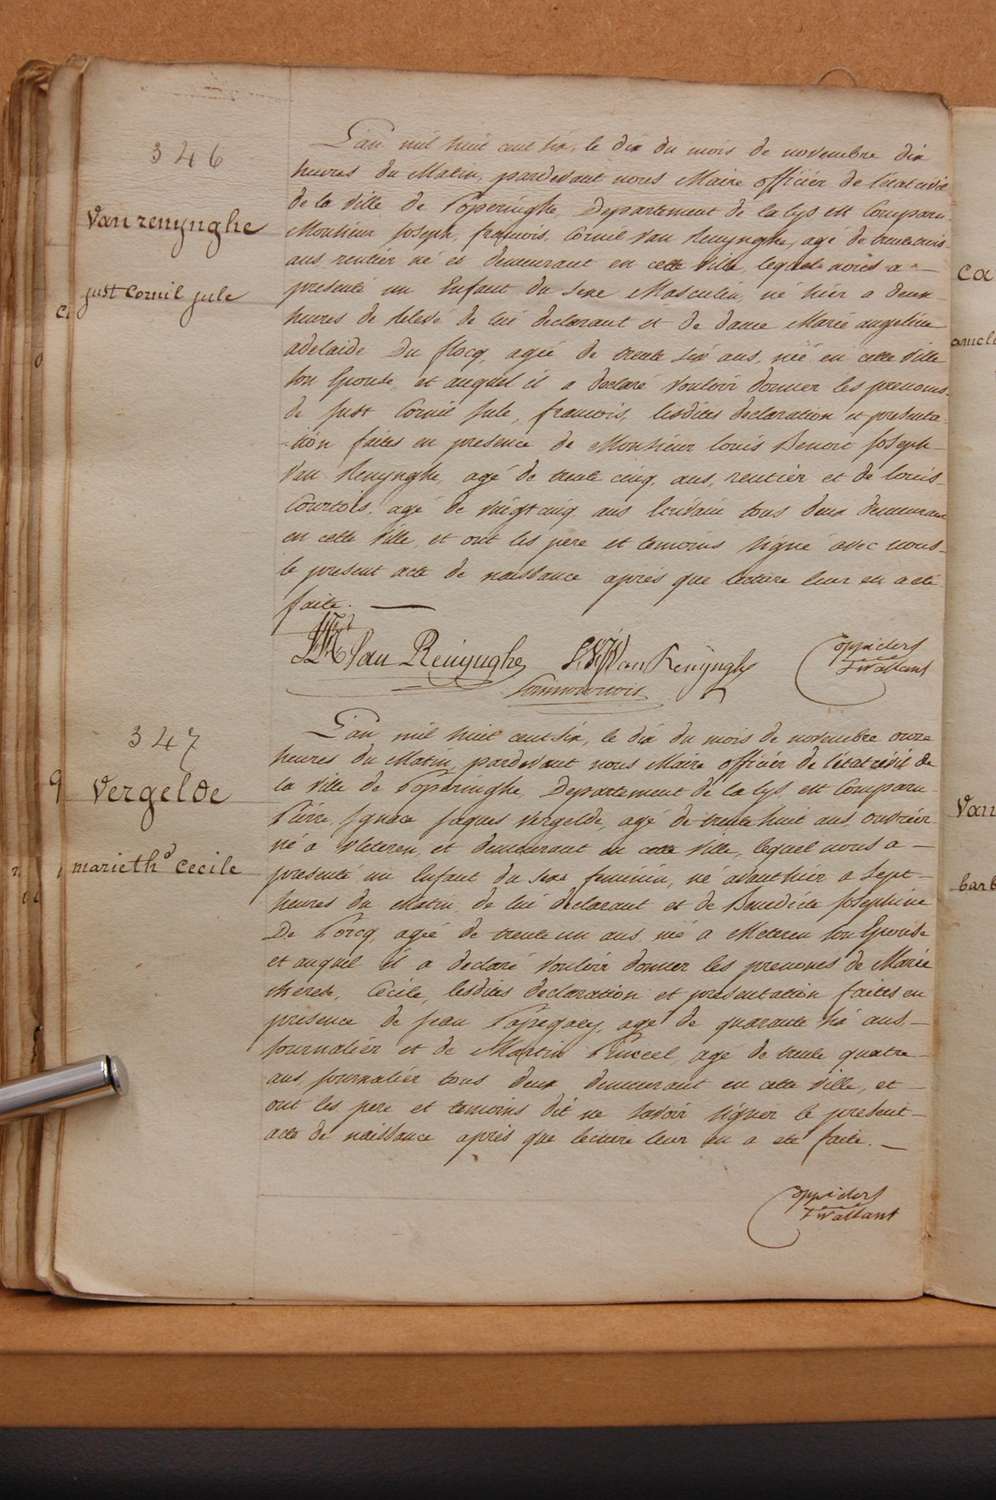 346
Van renynghe
just Cornil jule
L'an mil huit cent six, le dix du mois de novembre dix
heures du Matin, pardevant nous Maire officier de l'état civil
de la Ville de Poperinghe, Departement de la Lys est Comparu
Monsieur Joseph, francois, Cornil Van Renynghe, agé de trente trois
ans, rentier né et demeurant en cette Ville, lequel nous a
presenté un Enfant du sexe Masculin, né hier a deux
heures de relevé de lui declarant et de dame Marie angeline
adelaide Du flocq, agée de trente six ans, née en cette Ville
son Epouse, et auquel il a declaré vouloir donner les prenoms
de Just Cornil Jule, francois, lesdites declaration et presenta-
-tion faites en presence de Monsieur louis Benoit Joseph
Van Renynghe, agé de trente cinq, ans, rentier et de louis
Courtois, agé de vingt cinq ans Ecrivain tous deux demeurant
en cette Ville, et ont les pere et temoins signé avec nous
le present acte de naissance aprés que lecture leur en a eté
faite.
Van Renynghe Van Renynghe
347
Vergelde
marie th.e Cecile
L'an mil huit cent six, le dix du mois de novembre onze
heures du Matin, pardevant nous Maire officier de l'état civil de
la Ville de Poperinghe, Departement de la Lys est Comparu
Pierre, Ignace Jaques Vergelde, agé de trente huit ans, ouvrier
né a Vleteren, et demeurant en cette Ville, lequel nous a
presenté un Enfant du sexe feminin, né avant hier a sept
heures du Matin, de lui declarant et de Benedicte Josephine
De Corcq, agée de trente un ans, née a Meteren son Epouse
et auquel il a declaré vouloir donner les prenoms de Marie
therese, Cecile, lesdites declaration et presentation faites en
presence de Jean agé de quarante six ans
Journalier et de Martin agé de trente quatre
ans, journalier tous deux demeurant en cette Ville, et
ont les pere et temoins dit ne savoir signer le present
acte de naissance aprés que lecture leur en a eté faite.